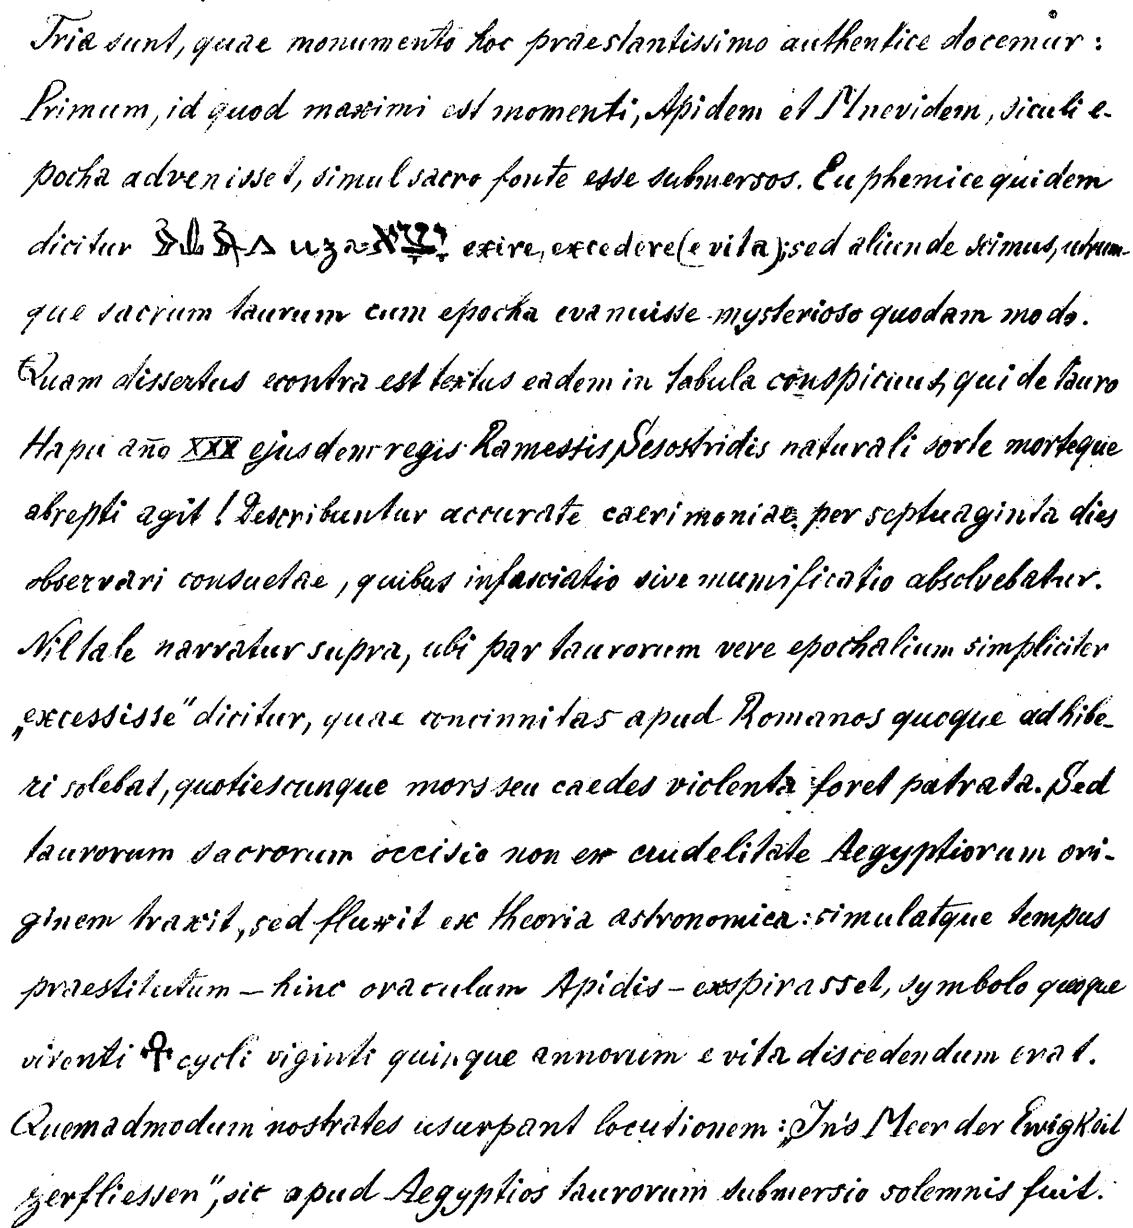 Tria sunt, quae monumento hoc praestantissimo authentice docemur:
Primum, id quod maximi est momenti, Apidem et Mnevidem, siculi e-
pocha advenisset, simul sacro fonte esse submersos. Euphemice quidem
dicitur uza exire, excedere (e vita); sed aliunde scimus, utrum-
que sacrum taurum cum epocha evanuisse mysterioso quodam modo.
Quam dissertus econtra est textus eadem in tabula conspicuus, qui de tauro
Hapu año XXX ejusdem regis Ramessis Sesostridis naturali sorte morteque
abrepti agit! Describuntur accurate caerimoniae per septuaginta dies
observari consuetae, quibus infasciatio sive mumificatio absolvebatur.
Nil tale narratur supra, ubi par taurorum vere epochalium simpliciter
„excessisse" dicitur, quae concinnitas apud Romanos quoque adhibe-
ri solebat, quotiescunque mors seu caedes violenta foret patrata. Sed
taurorum sacrorum occisio non ex crudelitate Aegyptiorum ori-
ginem traxit, sed fluxit ex theoria astronomica: simulatque tempus
praestitutum – hinc oraculum Apidis – exspirasset, symbolo quoque
viventi ☥ cycli viginti quinque annorum e vita discedendum erat.
Quemadmodum nostrates usurpant locutionem: „In's Meer der Ewigkeit
zerfliessen", sic apud Aegyptios taurorum submersio solemnis fuit.